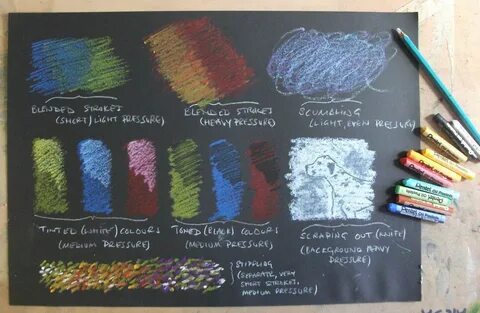 BLENDED STROKES
(SHORT/LIGHT PRESSURE)
BLENDED STROKES
(HEAVY PRESSURE)
SCUMBLING
(LIGHT, EVEN PRESSURE)
TINTED (WHITE) COLOURS
(MEDIUM PRESSURE)
TONED (BLACK) COLOURS
(MEDIUM PRESSURE)
SCRAPING OUT (KNIFE)
(BACKGROUND HEAVY
PRESSURE)
STIPPLING
(SEPARATE, VERY
SHORT STROKES,
MEDIUM PRESSURE)
Pentel Oil Pastels
Pentel Oil Pastels